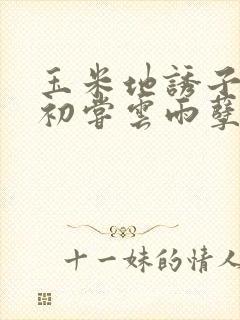 玉米地誘子
初嘗雲雨孽
十一妹的情人